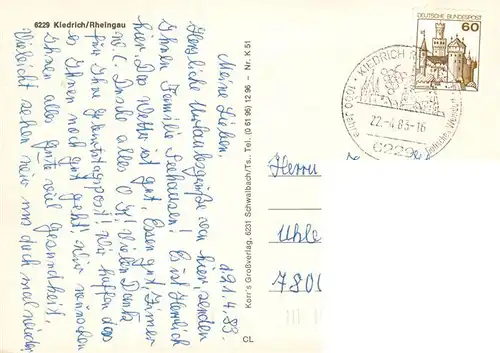 6229 Kiedrich/Rheingau
19.4.83.
Meine Lieben,
Herzliche Urlaubsgrüße von hier, senden
Ihnen Familie Seehausen! Es ist herrlich
hier. Das Wetter ist gut, Essen gut, Zimmer
W.C. Dusche alles O.K! Vielen Dank
für Ihre Geburtstagspost! Wir hoffen das
es Ihnen noch gut geht! Wir wünschen
Ihnen alles Gute viel Gesundheit,
Vielleicht sehen wir uns doch mal wieder
Korr's Großverlag, 6231 Schwalbach/Ts., Tel. (0 61 96) 12 96 – Nr. K 51
CL
DEUTSCHE BUNDESPOST
60
KIEDRICH
22.-4.83-16
6229
Herrn
Uhle
780